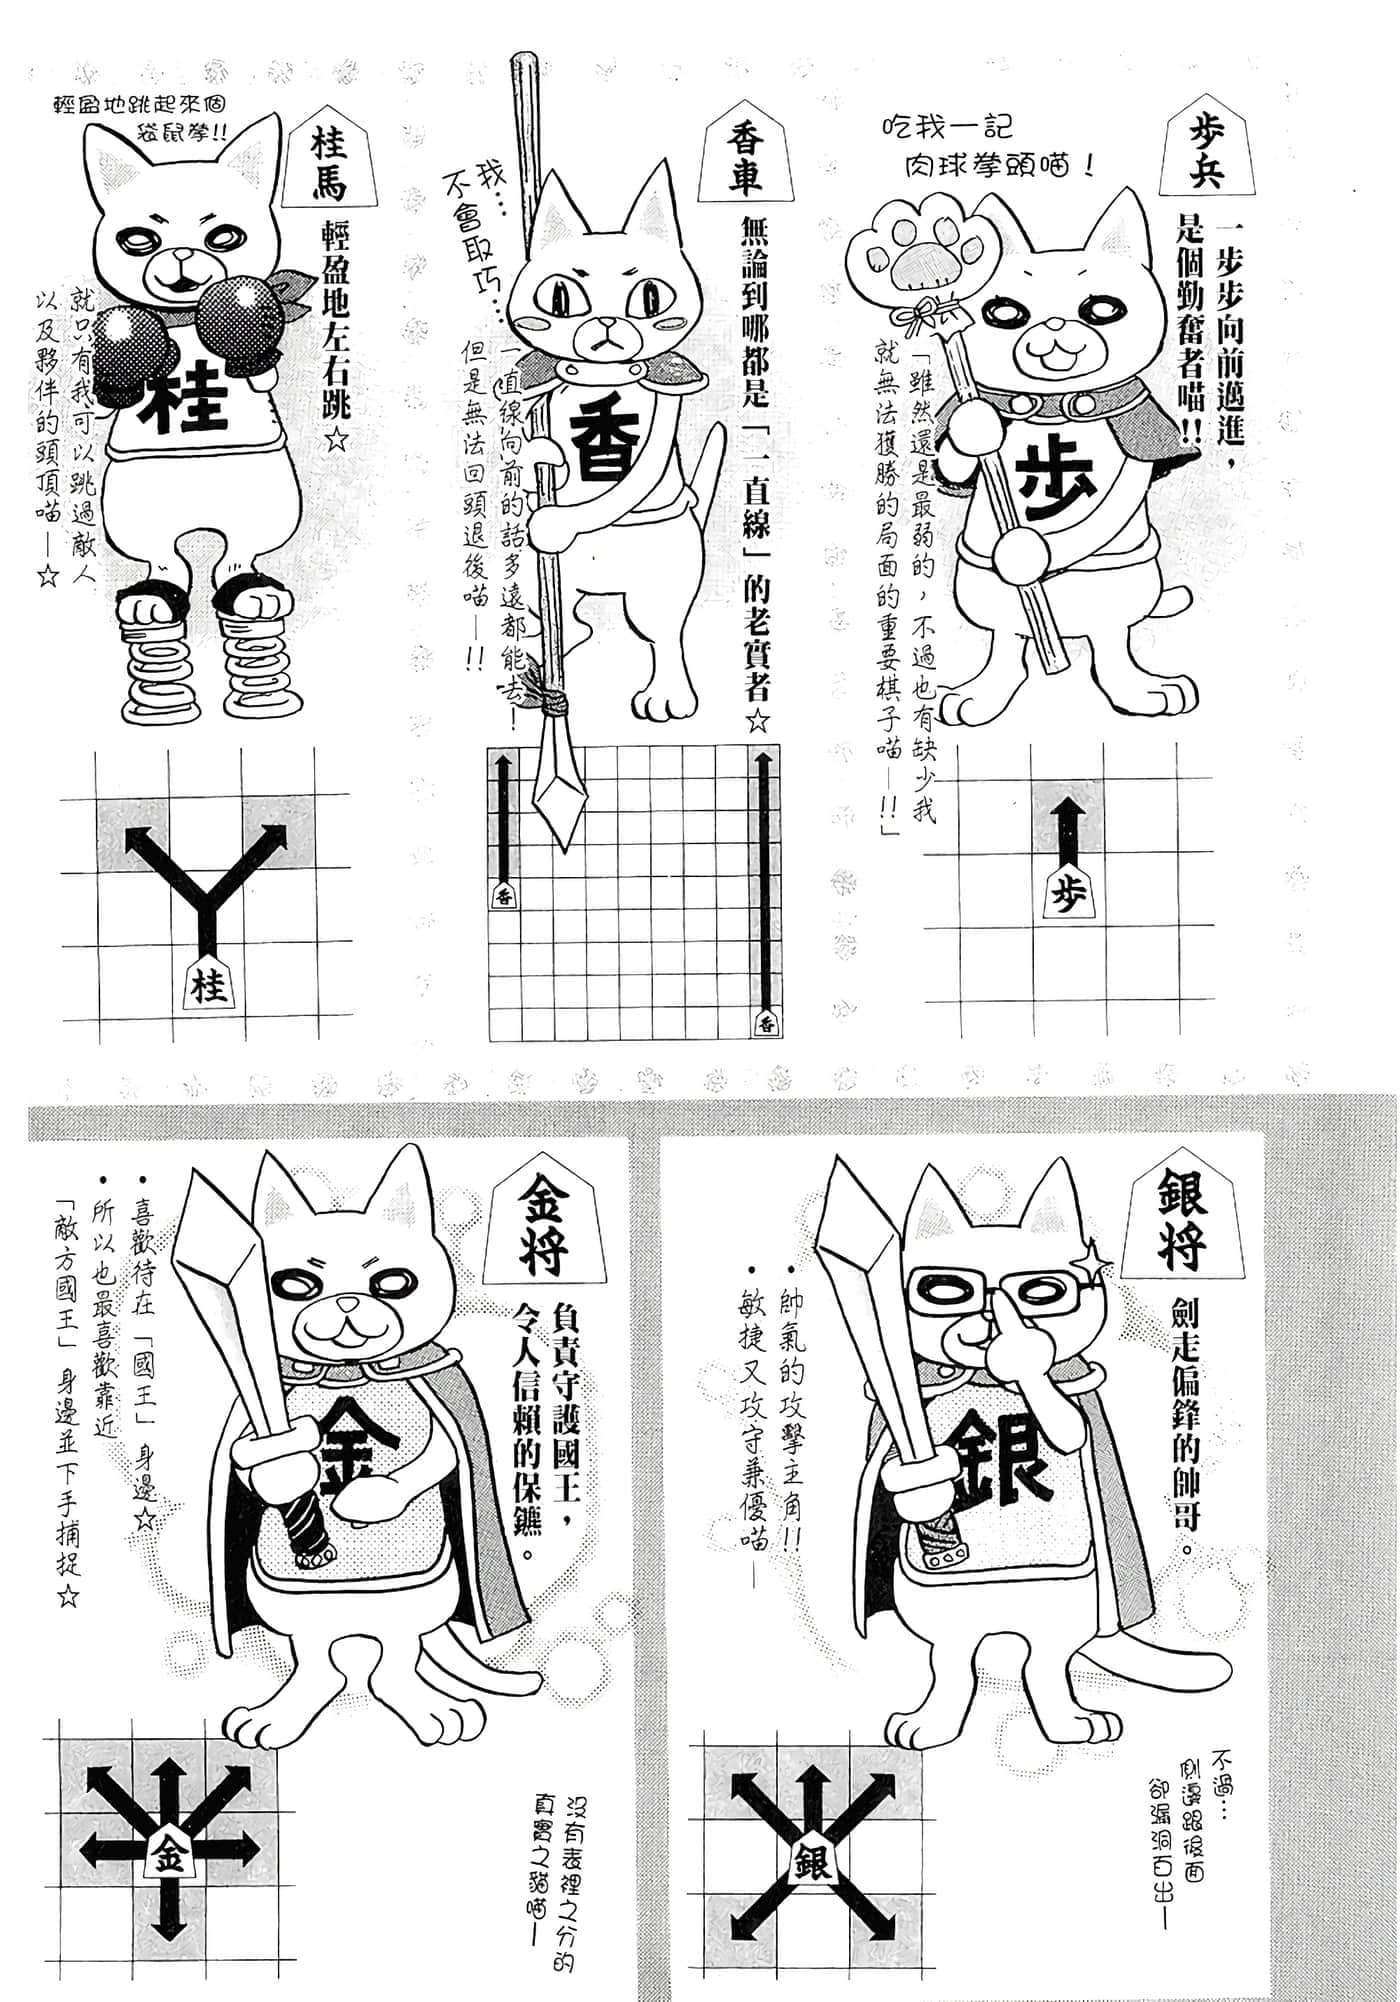 步兵
一步步向前邁進，
是個勤奮者喵!!
吃我一記
肉球拳頭喵！
步
「雖然還是最弱的，不過也有缺少我
就無法獲勝的局面的重要棋子喵—!!」
步
香車
無論到哪都是「一直線」的老實者☆
我…
不會取巧…
香
一直線向前的話多遠都能去！
但是無法回頭退後喵—!!
香
香
桂馬
輕盈地左右跳☆
輕盈地跳起來個
袋鼠拳!!
桂
就只有我可以跳過敵人
以及夥伴的頭頂喵—☆
桂
銀将
劍走偏鋒的帥哥。
銀
•帥氣的攻擊主角!!
•敏捷又攻守兼優喵—
不過…
側邊跟後面
卻漏洞百出—
銀
金将
負責守護國王，
令人信賴的保鑣。
金
•喜歡待在「國王」身邊☆
•所以也最喜歡靠近
「敵方國王」身邊並下手捕捉☆
沒有表裡之分的
真實之貓喵—
金